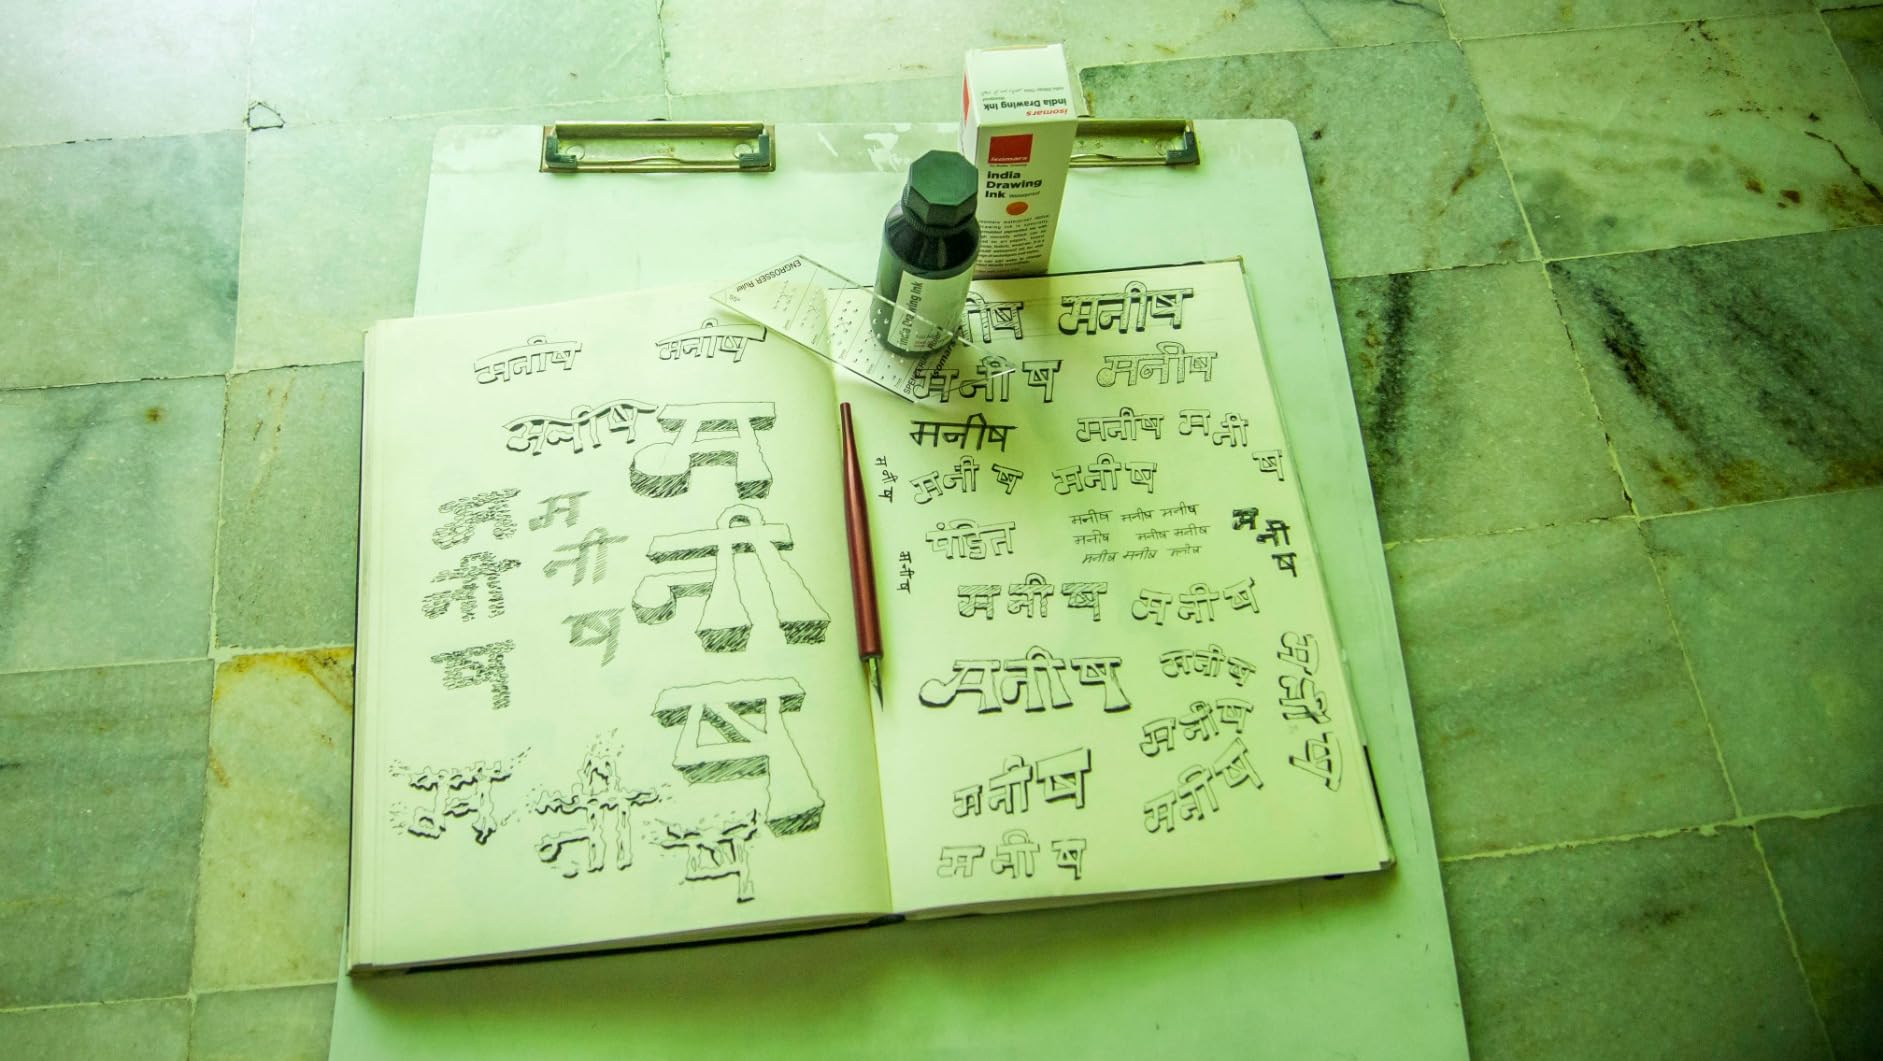 isomars
india Drawing Ink
isomars
india
Drawing
Ink Waterproof
India Drawing Ink
ENGROSSER Ruler
मनीष मनीष
मनीष
म
नी
ष
म
नी
ष
म
नी
ष
म नी ष
नीष मनीष
मनीष मनीष
मनीष मनीष मनीष
मनीष
मनीष मनीष
पंडित
मनीष मनीष मनीष
मनीष मनीष मनीष
मनीष मनीष मनीष
मनीष
मनीष
मनीष
मनीष मनीष
मनीष मनीष
मनीष
मनीष
मनीष मनीष
मनीष